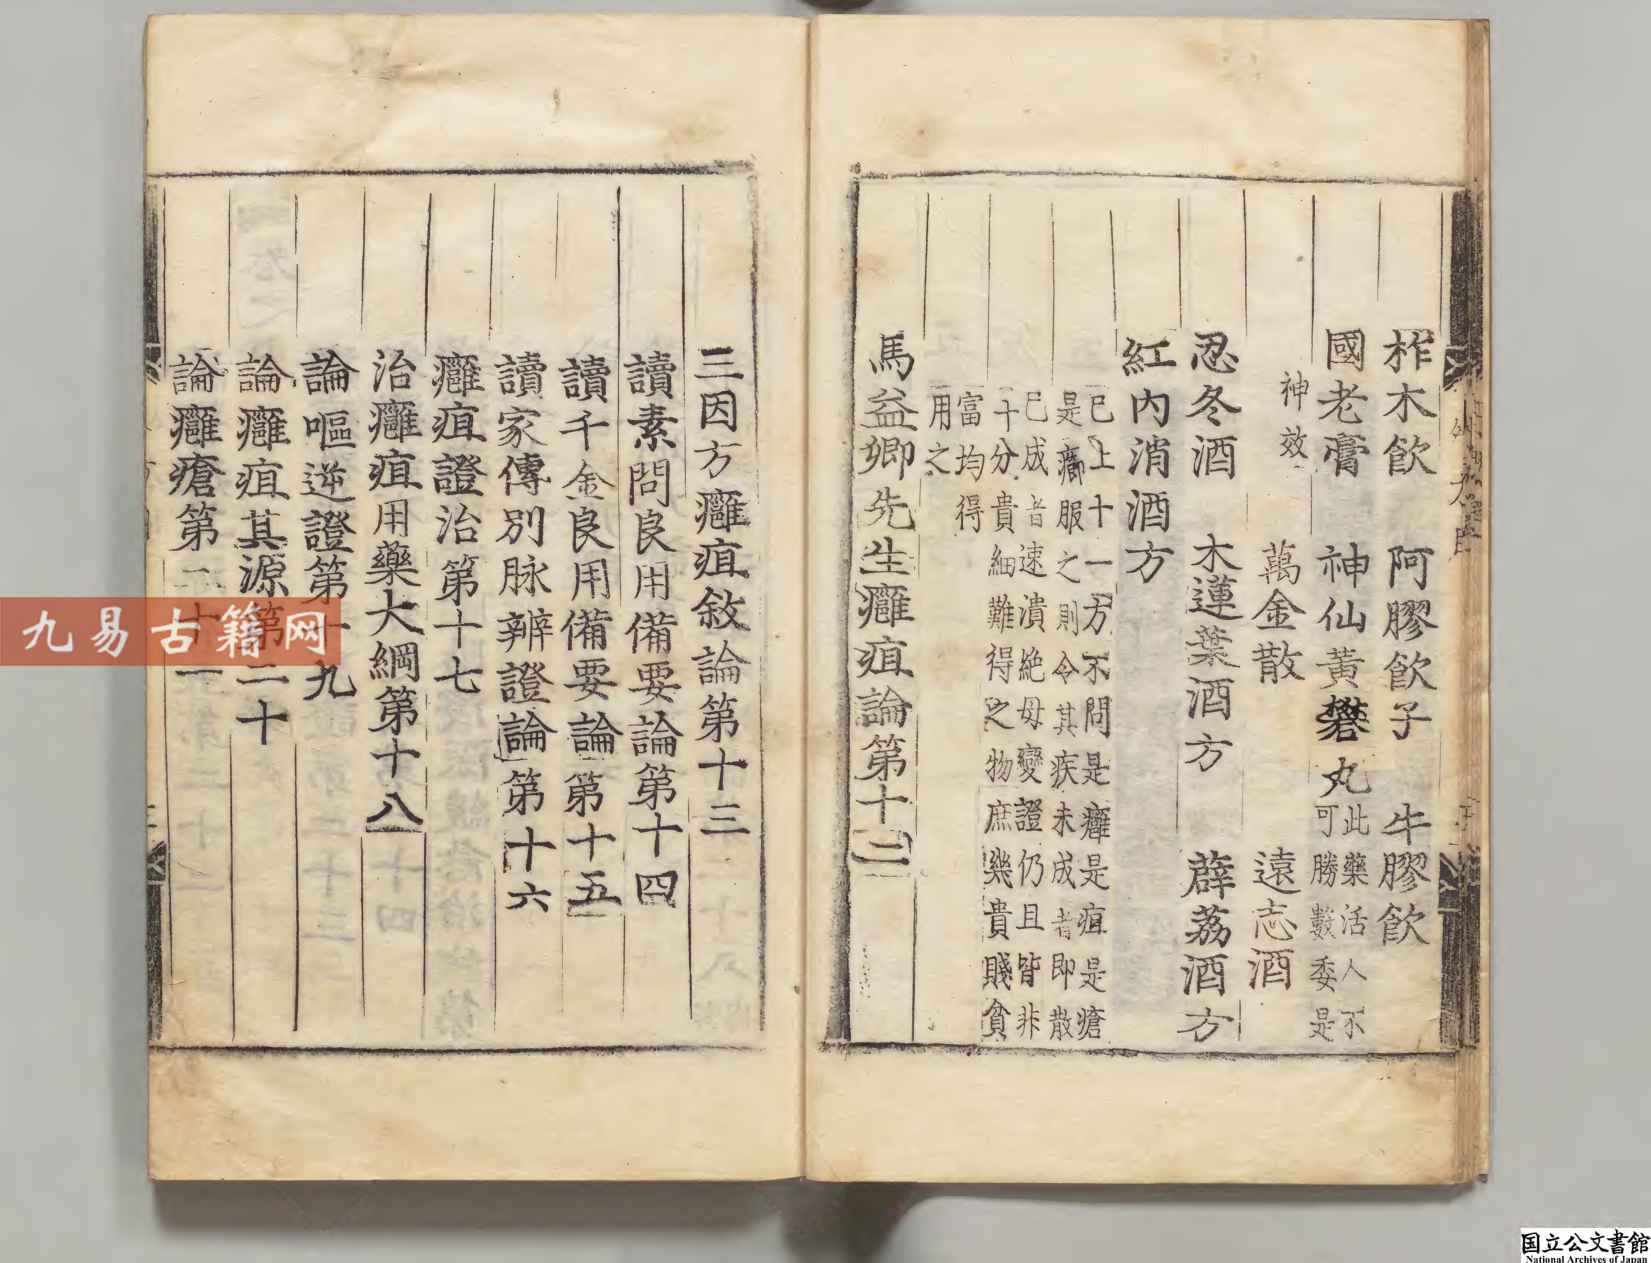 柞木飲　阿膠飲子　牛膠飲
國老膏　神仙黃礬丸
此藥活人不
可勝數委是
神效
萬金散　遠志酒
忍冬酒　木蓮葉酒方　薜荔酒方
紅內消酒方
已上十一方不問是癰是疽是瘡
是癤服之則令其疾未成者即散
已成者速潰絶毋變證仍且皆非
十分貴細難得之物庶幾貴賤貧
富均得
用之
馬益卿先生癰疽論第十二
三因方癰疽敘論第十三
讀素問良用備要論第十四
讀千金良用備要論第十五
讀家傳別脉辨證論第十六
癰疽證治第十七
治癰疽用藥大綱第十八
論嘔逆證第十九
論癰疽其源第二十
論癰瘡第二十一
九易古籍网
国立公文書館
National Archives of Japan